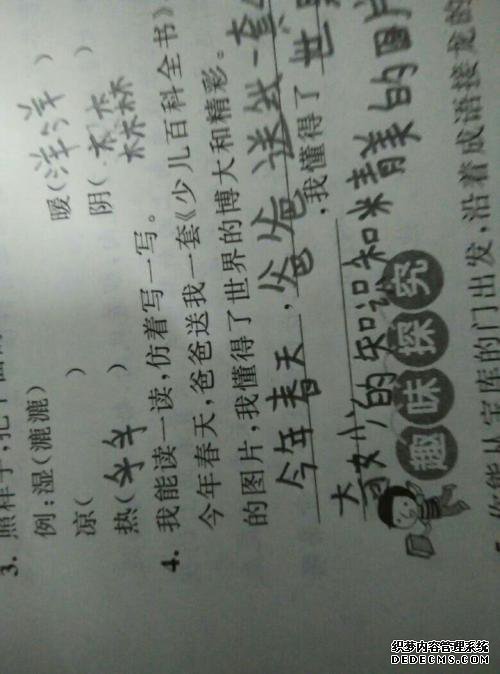 3. 照样子,把
例:湿(漉漉) 暖(洋洋)
凉( ) 阴(森森)
热( )
4. 我能读一读,仿着写一写。
今年春天,爸爸送我一套《少儿百科全书》
的图片,我懂得了世界的博大和精彩。
今年春天,爸爸送我一套
,我懂得了世
奇妙的知识和精美的图片
趣味探究
能从宝库的门出发,沿着成语接龙的
织梦内容管理系统
DEDECMS.COM